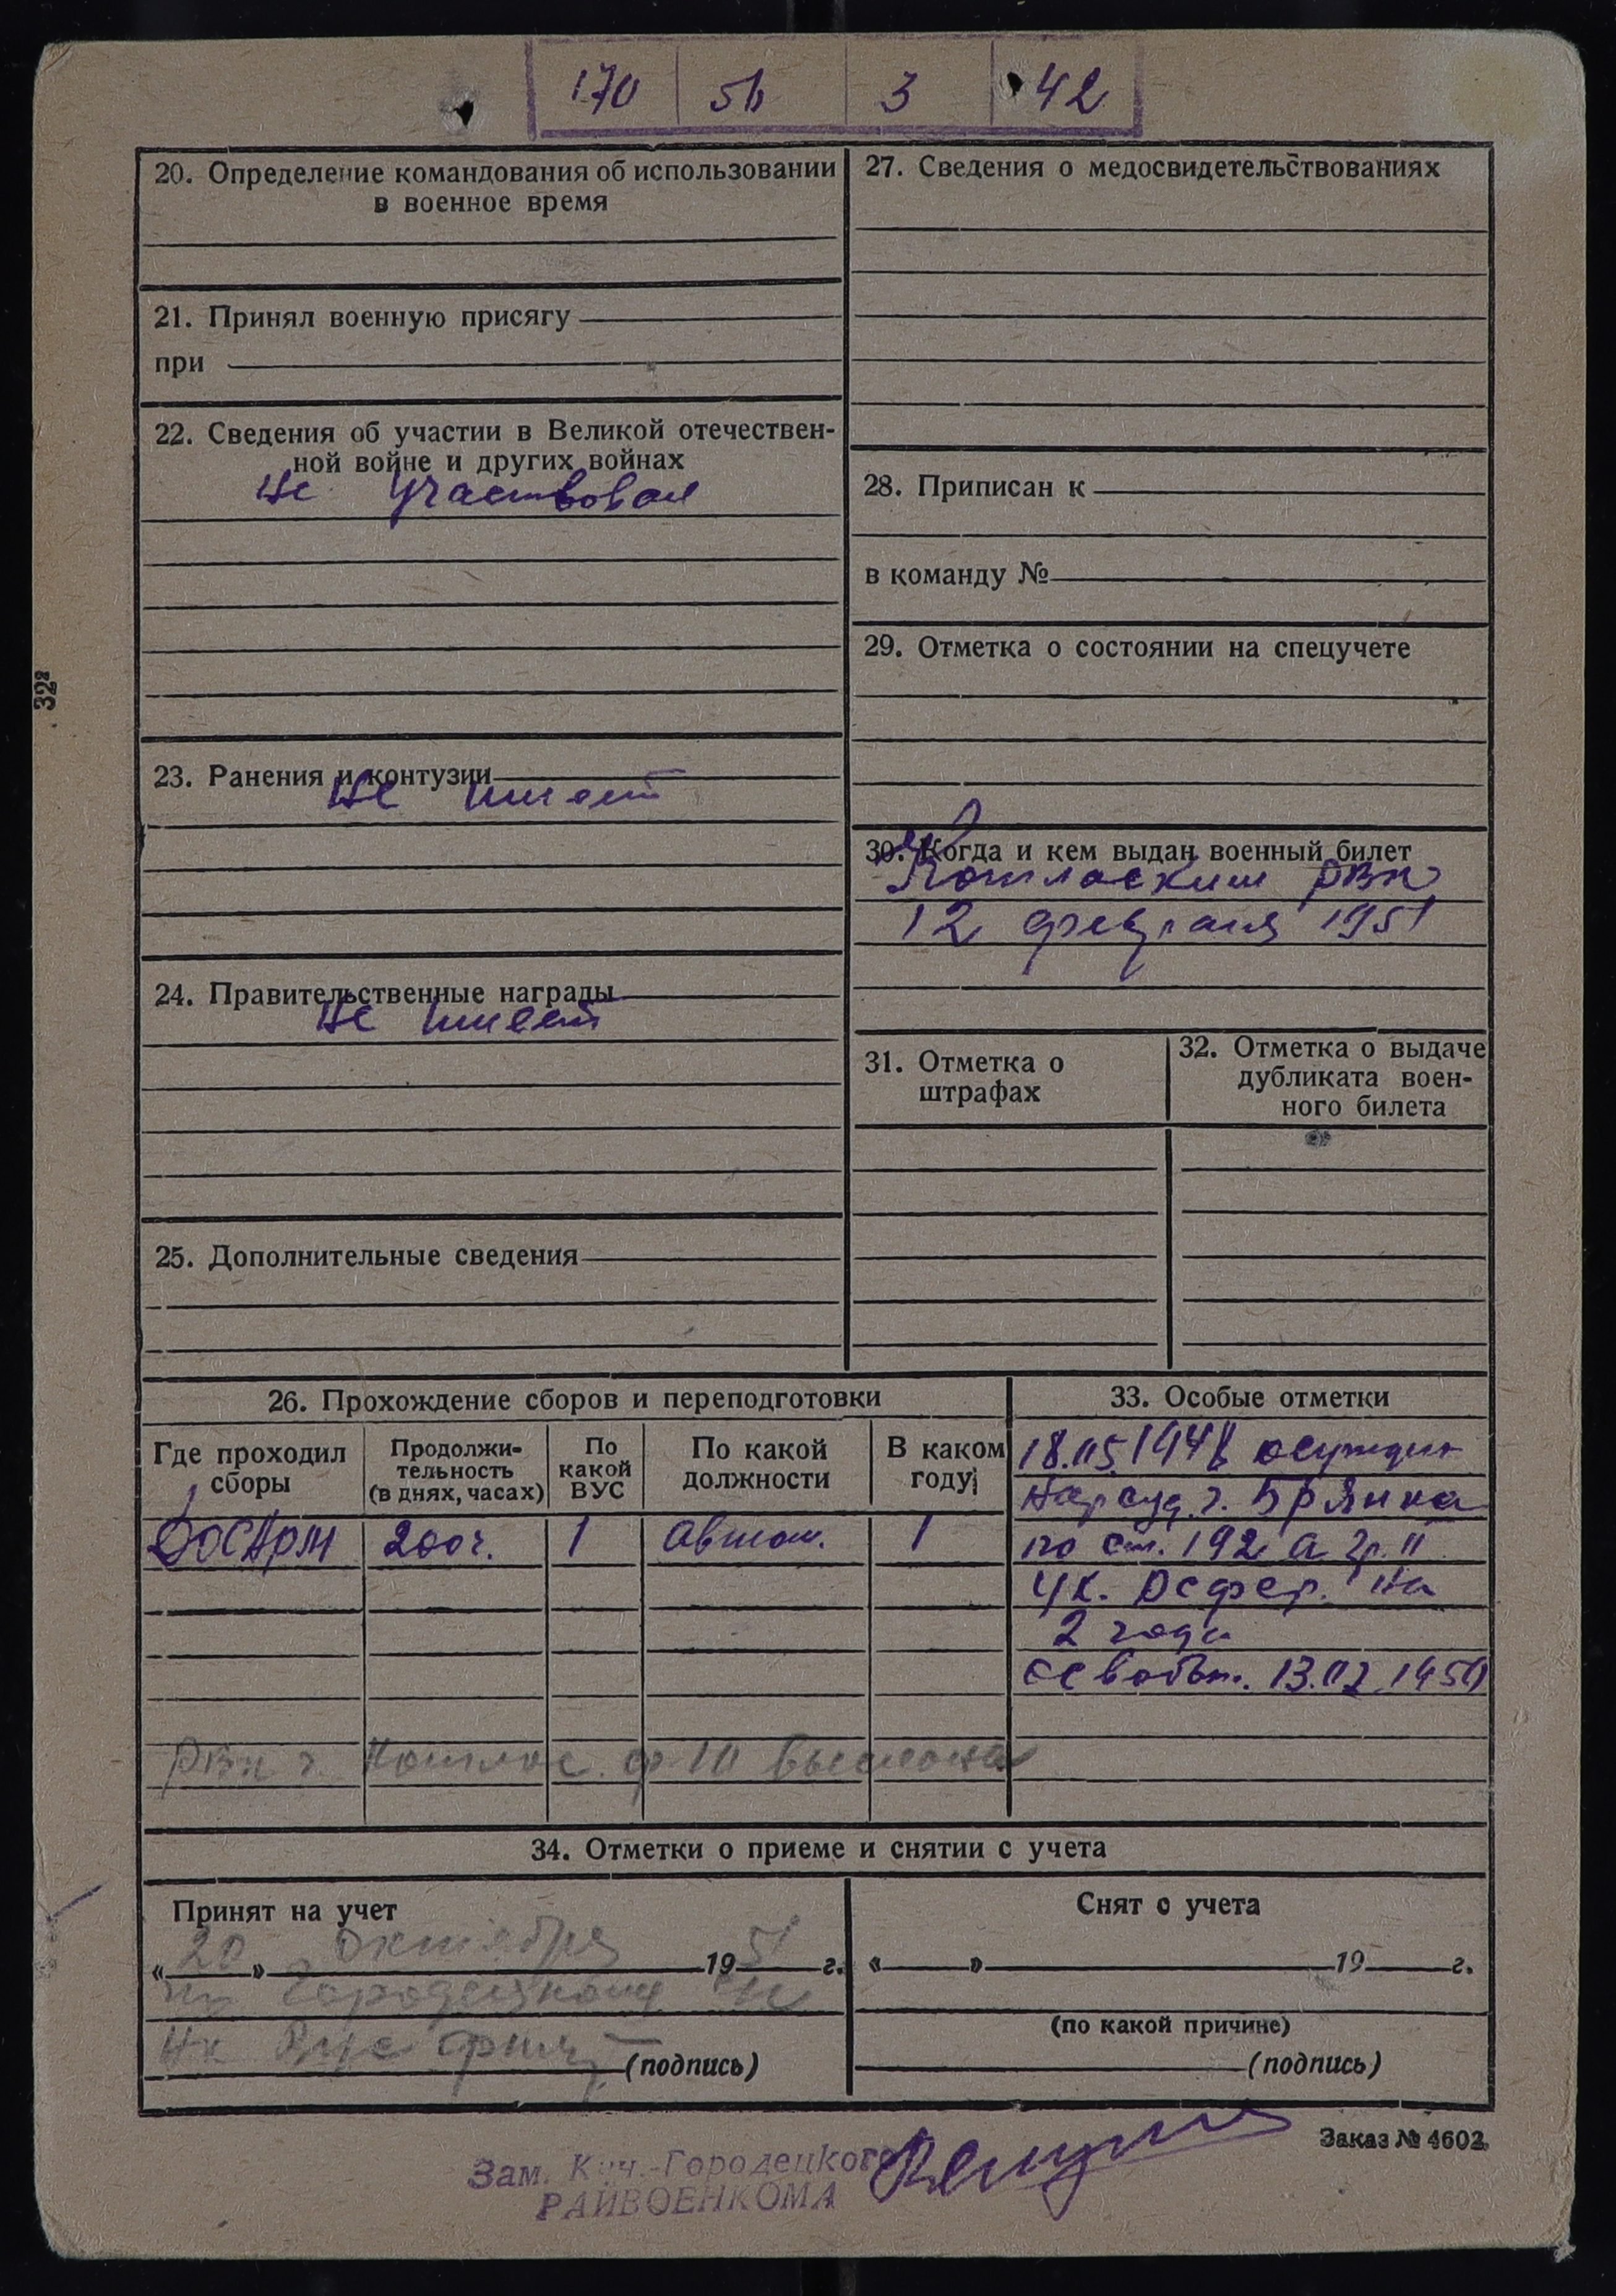 170 56 3 42
20. Определение командования об использовании
в военное время
21. Принял военную присягу
при
22. Сведения об участии в Великой отечествен-
ной войне и других войнах
Не участвовал
23. Ранения и контузии
Не имеет
24. Правительственные награды
Не имеет
25. Дополнительные сведения
27. Сведения о медосвидетельствованиях
28. Приписан к
в команду №
29. Отметка о состоянии на спецучете
30. Когда и кем выдан военный билет
Котласким РВК
12 февраля 1951
31. Отметка о
штрафах
32. Отметка о выдаче
дубликата воен-
ного билета
26. Прохождение сборов и переподготовки
Где проходил
сборы
Продолжи-
тельность
(в днях, часах)
По
какой
ВУС
По какой
должности
В каком
году
ДОСАРМ 200ч. 1 Автом. 1
РВК г. Котлас. ф 10 выслана
33. Особые отметки
18.05.1948 осужден
Нарсуд. г. Брянка
по ст. 192 а гр. II
УК. РСФСР. на
2 года
13.02.1950
34. Отметки о приеме и снятии с учета
Принят на учет
« 20 » октября 1951 г.
Городецкому
(подпись)
Снят с учета
« » 19 г.
(по какой причине)
(подпись)
Заказ № 4602
Зам. Кич.-Городецкого
РАЙВОЕНКОМА
32²